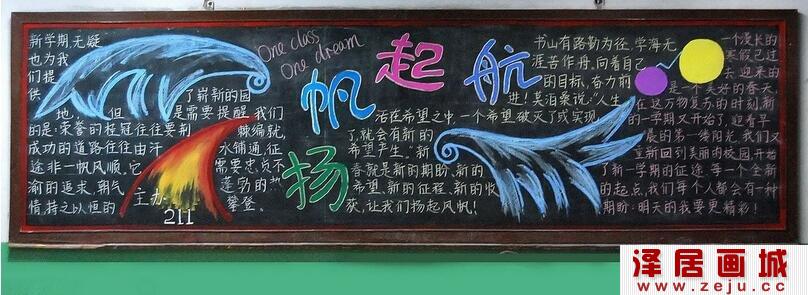 One class
One dream
扬帆起航
新学期,无疑
也为我
们提
供了崭新的园
地,但是需要提醒我们
的是:荣誉的桂冠往往要荆棘编就,
成功的道路往往由汗水铺通,征
途非一帆风顺,它需要忠贞不
渝的追求,朝气蓬勃的
情,持之以恒的攀登。
主办
211
书山有路勤为径,学海无
涯苦作舟,向着自己
的目标,奋力前
进!莫泊桑说:“人生
活在希望之中,一个希望破灭了或实现
了,就会有新的
希望产生。”新
春就是新的期盼,新的
希望,新的征程,新的收
获,让我们扬起风帆!
一个漫长的
寒假已过
去,迎来的
是一个美好的春天,
在这万物复苏的时刻,新
的一学期又开始了,迎着早
晨的第一缕阳光,我们又
重新回到美丽的校园,开始
了新一学期的征途,每一个全新
的起点,我们每个人都会有一种
期盼:明天的我要更精彩!
泽居画城
www.zeju.cc